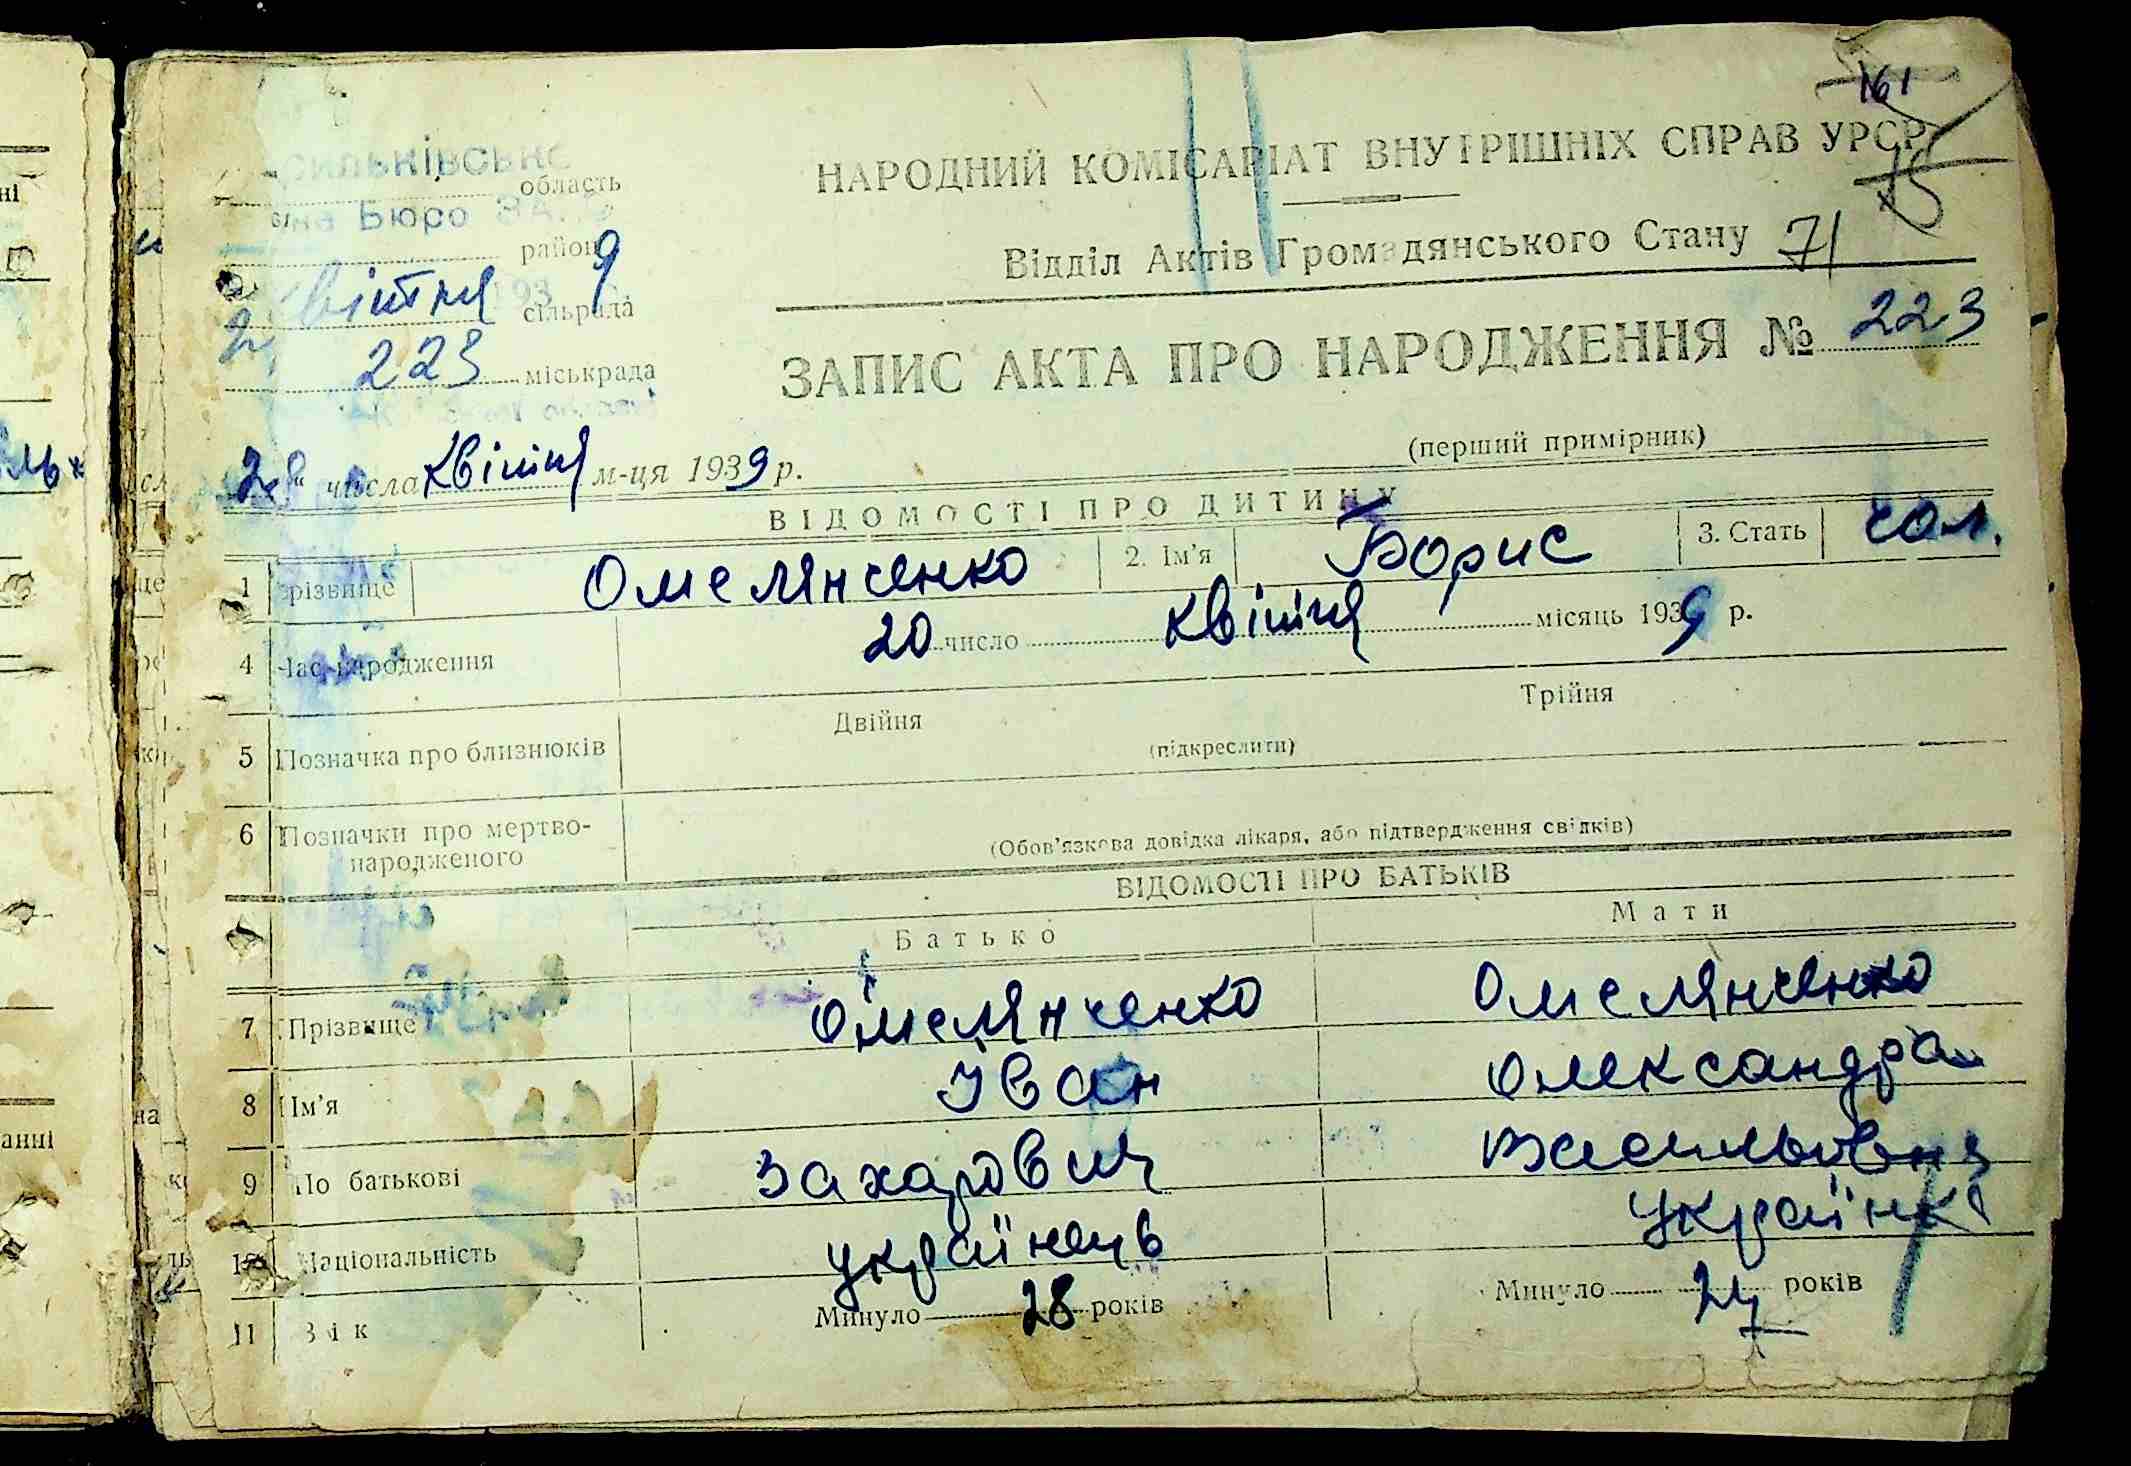 161
НАРОДНИЙ КОМІСАРІАТ ВНУТРІШНІХ СПРАВ УРСР
75
область
Бюро
район
Відділ Актів Громадянського Стану 71
квітня 1939
сільрада
223 міськрада
ЗАПИС АКТА ПРО НАРОДЖЕННЯ № 223
(перший примірник)
числа квітня м-ця 1939 р.
ВІДОМОСТІ ПРО ДИТИНУ
1 Прізвище Омелянченко 2. Ім'я Борис 3. Стать чол.
4 Час народження 20 число квітня місяць 1939 р.
5 Позначка про близнюків Двійня Трійня
(підкреслити)
6 Позначки про мертво-
народженого
(Обов'язкова довідка лікаря, або підтвердження свідків)
ВІДОМОСТІ ПРО БАТЬКІВ
Батько Мати
7 Прізвище Омелянченко Омелянченко
8 Ім'я Іван Олександра
9 По батькові Захарович Васильовна
10 Національність українець українка
11 Вік Минуло 28 років Минуло 24 років